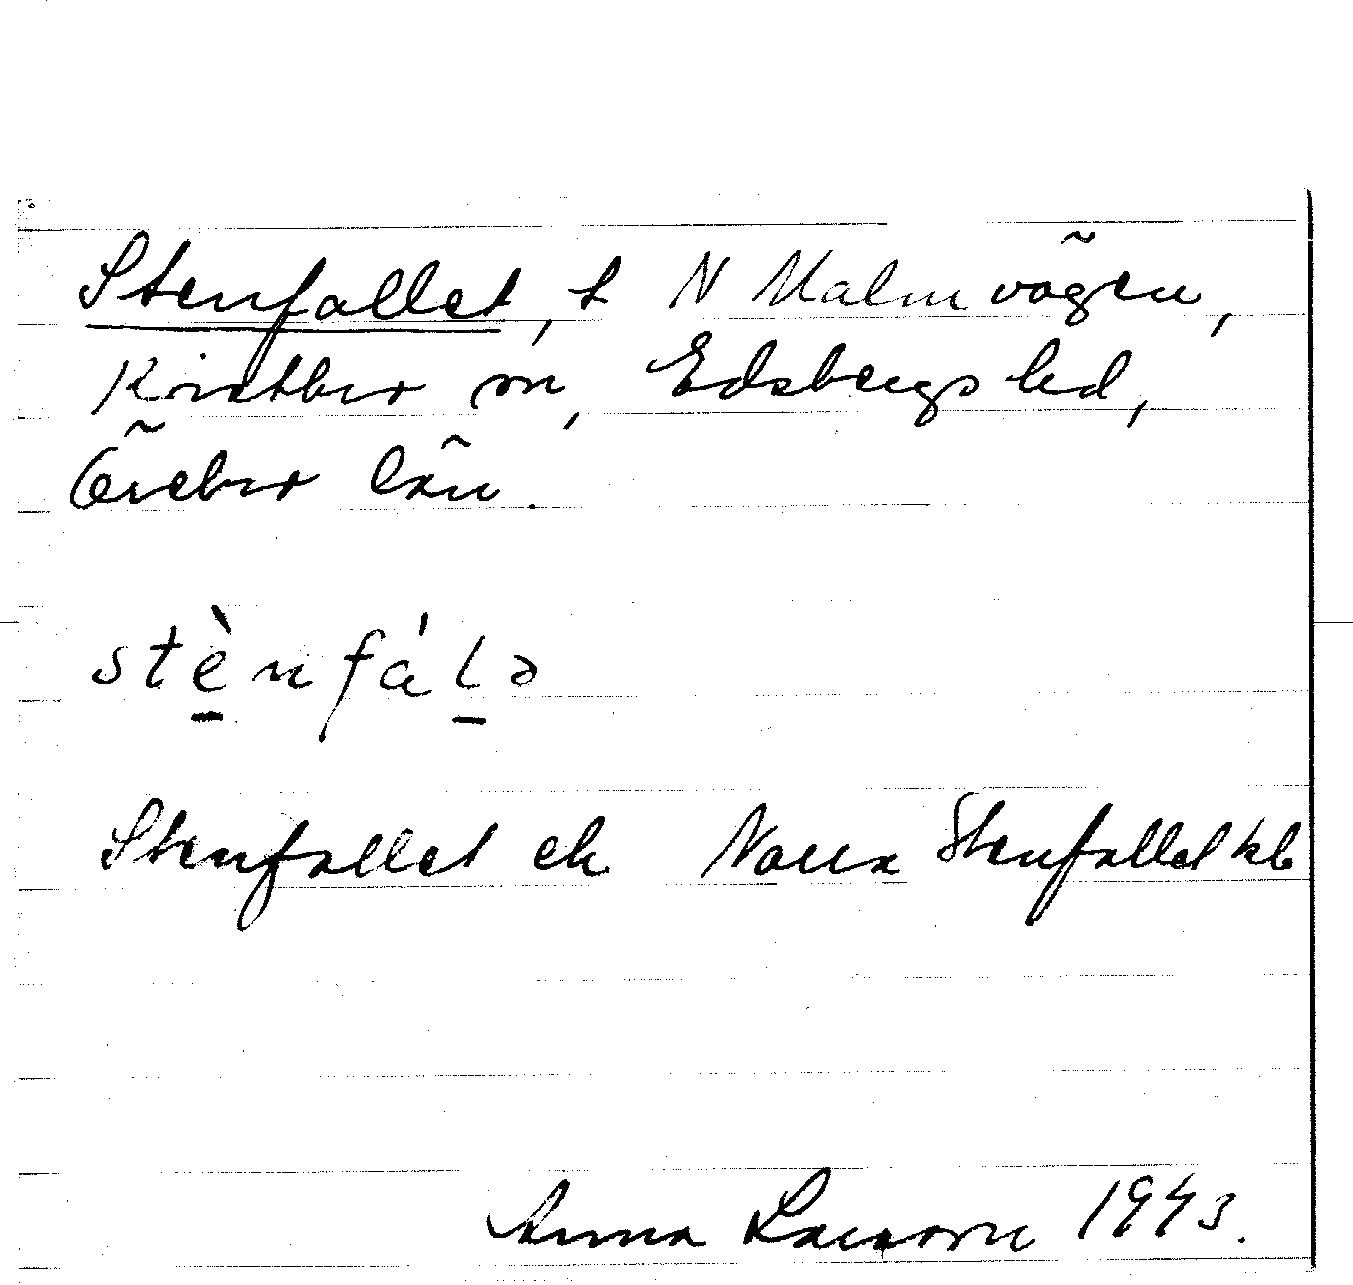 Stenfallet, t N Malm vägen,
Kvistbro sn, Edsbergs hd,
Örebro län.
stènfáLə
Stenfallet ek Norra Stenfallet kb
Anna Larsson 1943.